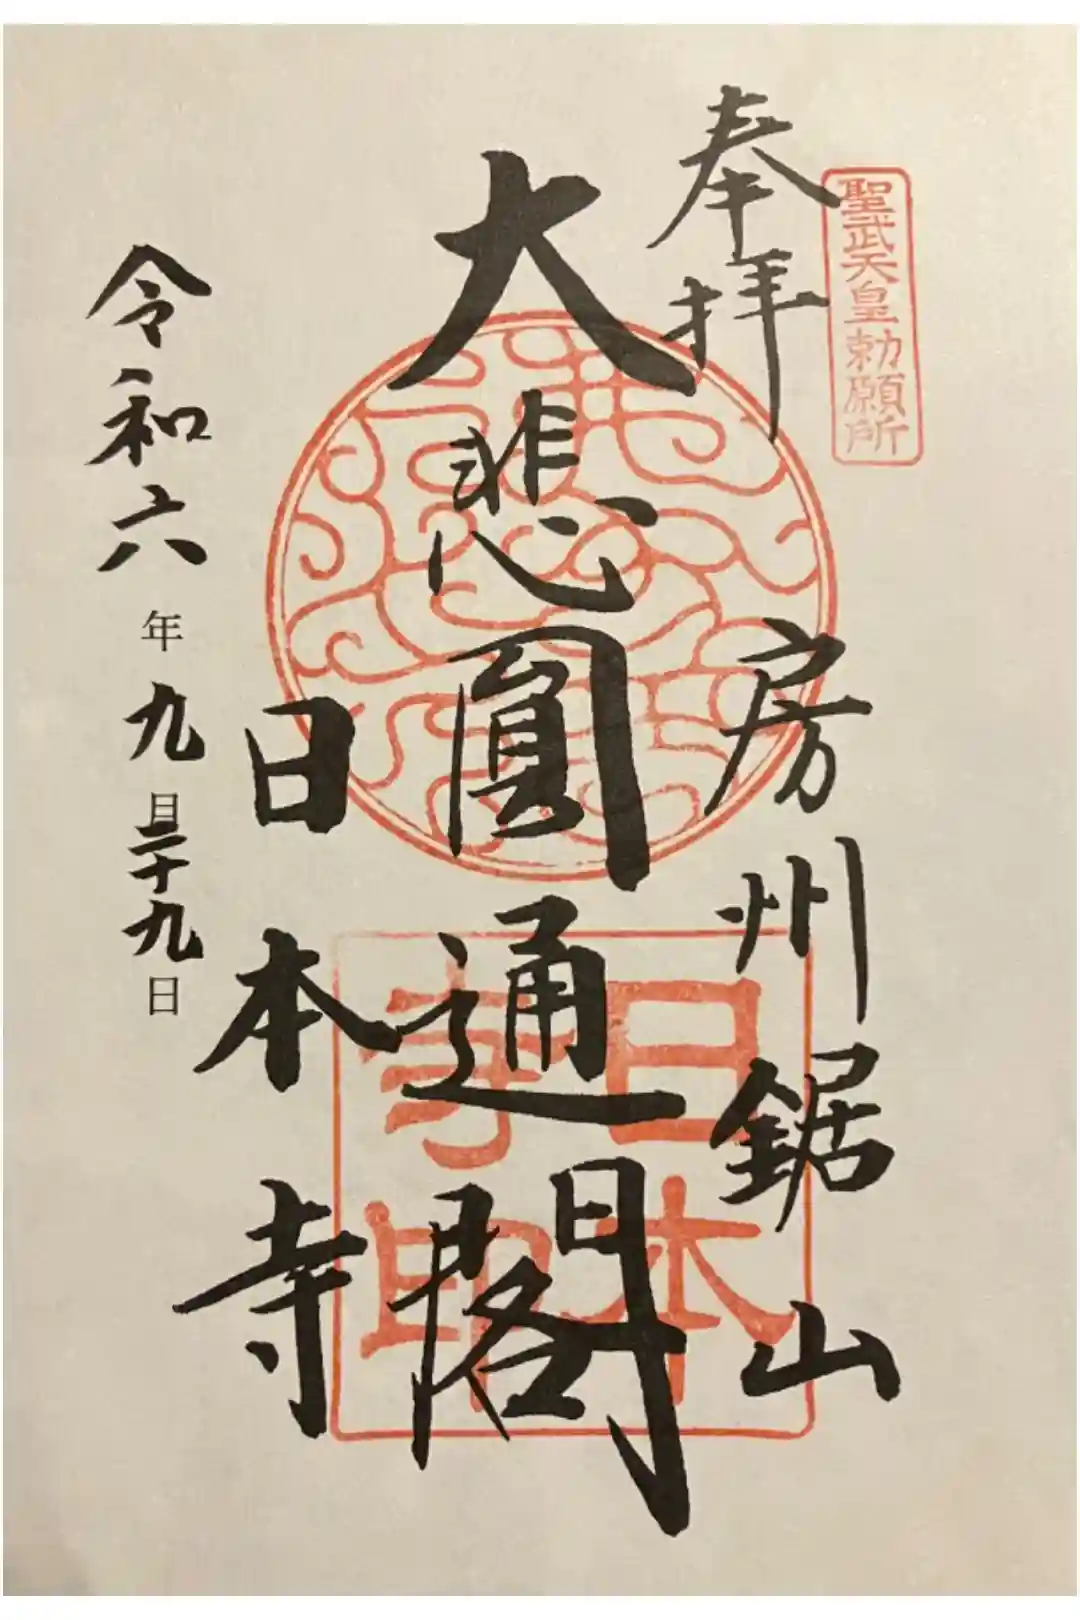 聖武天皇勅願所
奉拝
房州鋸山
大悲圓通閣
日本寺
令和六年九月二十九日
日本寺印